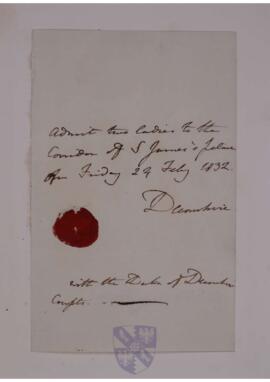 Admit two ladies to the
Corridor of S James's Palace
on Friday 24 Feby 1832.
Devonshire
with the Duke of Devonshire
Compts.